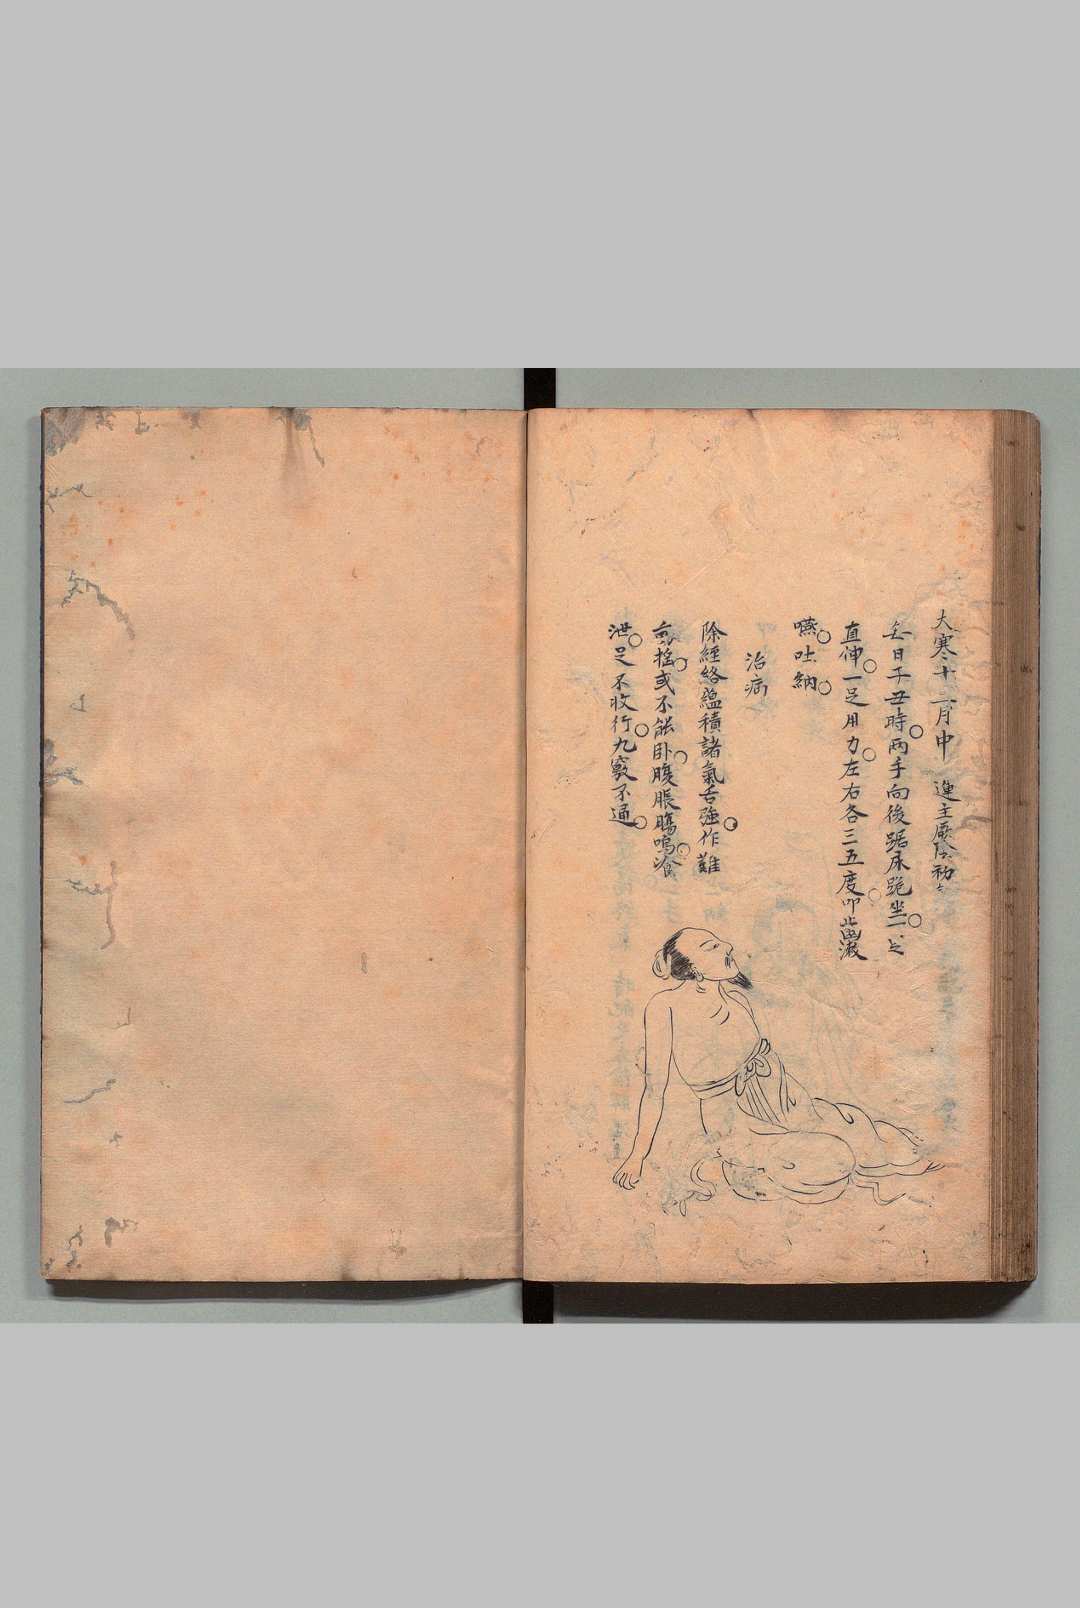 大寒十二月中　運主厥陰初气
每日子丑時○兩手向後踞床跪坐○一足
直伸○一足用力○左右各三五度○叩齒漱
嚥○吐納○
治病
除經絡蘊積諸氣舌強○作難
或不能卧○腹脹腸鳴○飧
泄○足不收行○九竅不通○